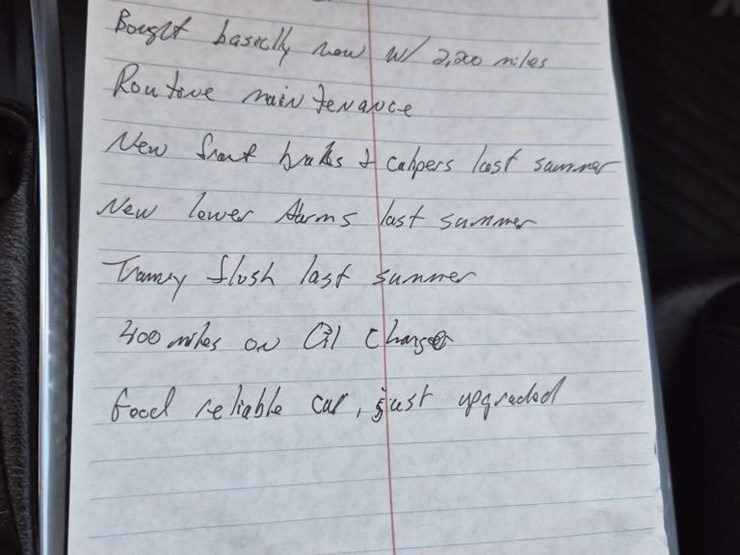 Bought basiclly new w/ 2,200 miles
Routine maintenance
New front brakes & calipers last summer
New lower Arms last summer
Tranny flush last summer
400 miles on Oil Change
Good reliable car, just upgraded